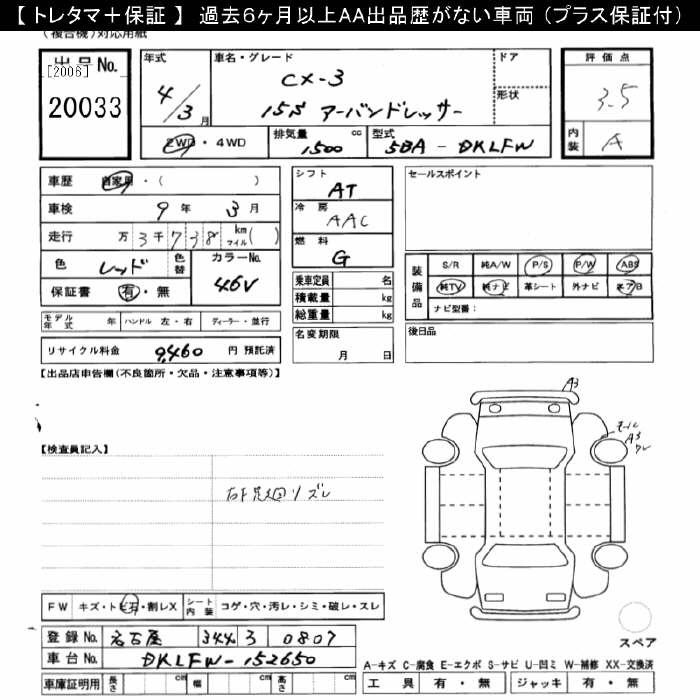 【 トレタマ＋保証 】 過去6ヶ月以上AA出品歴がない車両（プラス保証付）
（複合機）対応用紙
出品No.
[2006]
20033
年式
4/3月
車名・グレード
CX-3
15S アーバンドレッサー
ドア
形状
評価点
3.5
内装 A
2WD ・ 4WD
排気量 1500 cc
型式 5BA - DKLFW
車歴 自家用 ・（ ）
車検 9年 3月
走行 万3千738 km マイル( )
色 レッド 色替
カラーNo. 46V
保証書 有・無
シフト AT
冷房 AAC
燃料 G
乗車定員 名
積載量 kg
総重量 kg
セールスポイント
装備品
S/R 純A/W P/S P/W ABS
純TV 純ナビ 革シート 外ナビ エアB
ナビ型番：
モデル年式 年 ハンドル 左・右 ディーラー・並行
リサイクル料金 9,460 円 預託済
名変期限 月 日
後日品
【出品店申告欄(不良箇所・欠品・注意事項等)】
A3
A3
【検査員記入】
FW キズ・トビ石・割レX シート内装 コゲ・穴・汚レ・シミ・破レ・スレ
登録No. 名古屋 344 3 0807
車台No. DKLFW-152650
車庫証明用 長さ cm 幅 cm 高さ cm
スペア
A-キズ C-腐食 E-エクボ S-サビ U-凹ミ W-補修 XX-交換済
工具 有・無 ジャッキ 有・無